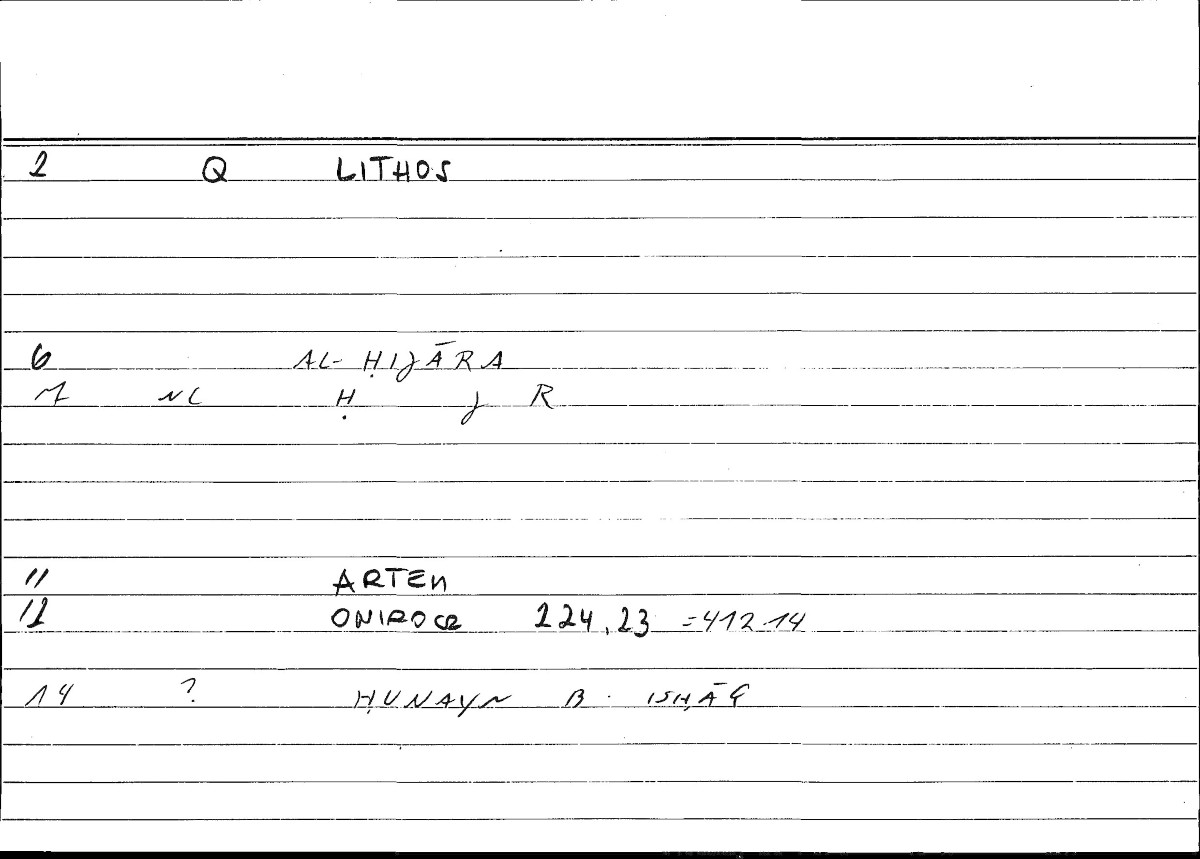 2 Q LITHOS
6 AL-ḤIJĀRA
7 NC Ḥ J R
11 ARTEM
12 ONIROCR 224,23 =412.14
14 ? ḤUNAYN B. ISḤĀQ